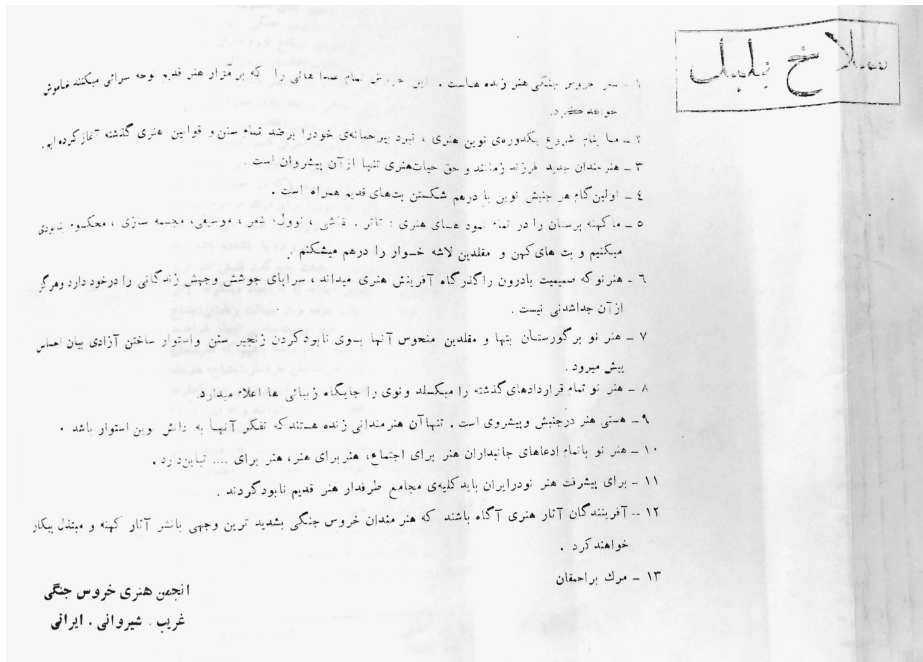 سلاخ بلبل
۱ ـ هنر خروس جنگی هنر زنده هاست . این خروش تمام صدا هائی را که بر مزار هنر قدیم نوحه سرائی میکنند خاموش
خواهد کرد.
۲ ـ ما بنام شروع یکدوره‌ی نوین هنری ، نبرد بیرحمانه‌ی خودرا برضد تمام سنن و قوانین هنری گذشته آغاز کرده ایم.
۳ ـ هنر مندان جدید فرزند زمانند و حق حیات‌هنری تنها از آن پیشروان است .
٤ ـ اولین گام هر جنبش نوین با درهم شکستن بت‌های قدیم همراه است .
٥ ـ ما کهنه پرستان را در تمام نمود هـای هنری : تآتر . نقاشی ، نوول، شعر ، موسیقی، مجسمه سازی ، محکـوم بنابودی
میکنیم و بت های کهن و مقلدین لاشه خـوار را درهم میشکنم .
٦ ـ هنر نو که صمیمیت بادرون را گذرگاه آفرینش هنری میداند ، سراپای جوشش وجهش زندگانی را درخود دارد وهرگز
از آن جداشدنی نیست .
۷ ـ هنر نو بر گورستـان بتها و مقلدین منحوس آنها بسوی نابود کردن زنجیر سنن واستوار ساختن آزادی بیان احساس
پیش میرود .
۸ ـ هنر نو تمام قراردادهای گذشته را میگسلد ونوی را جایگاه زیبائی ها اعلام میدارد.
۹ ـ هستی هنر درجنبش وپیشروی است . تنها آن هنرمندانی زنده هستند که تفکر آنهـا به دانش نوین استوار باشد .
۱۰ ـ هنر نو باتمام ادعاهای جانبداران هنر برای اجتماع، هنر برای هنر، هنر برای .... تباین دارد .
۱۱ ـ برای پیشرفت هنر نودرایران باید کلیه‌ی مجامع طرفدار هنر قدیم نابود گردند .
۱۲ ـ آفرینندگان آثار هنری آگاه باشند که هنر مندان خروس جنگی بشدید ترین وجهی بانشر آثار کهنه و مبتذل پیکار
خواهند کرد .
۱۳ ـ مرك بر احمقان
انجمن هنری خروس جنگی
غریب . شیروانی . ایرانی